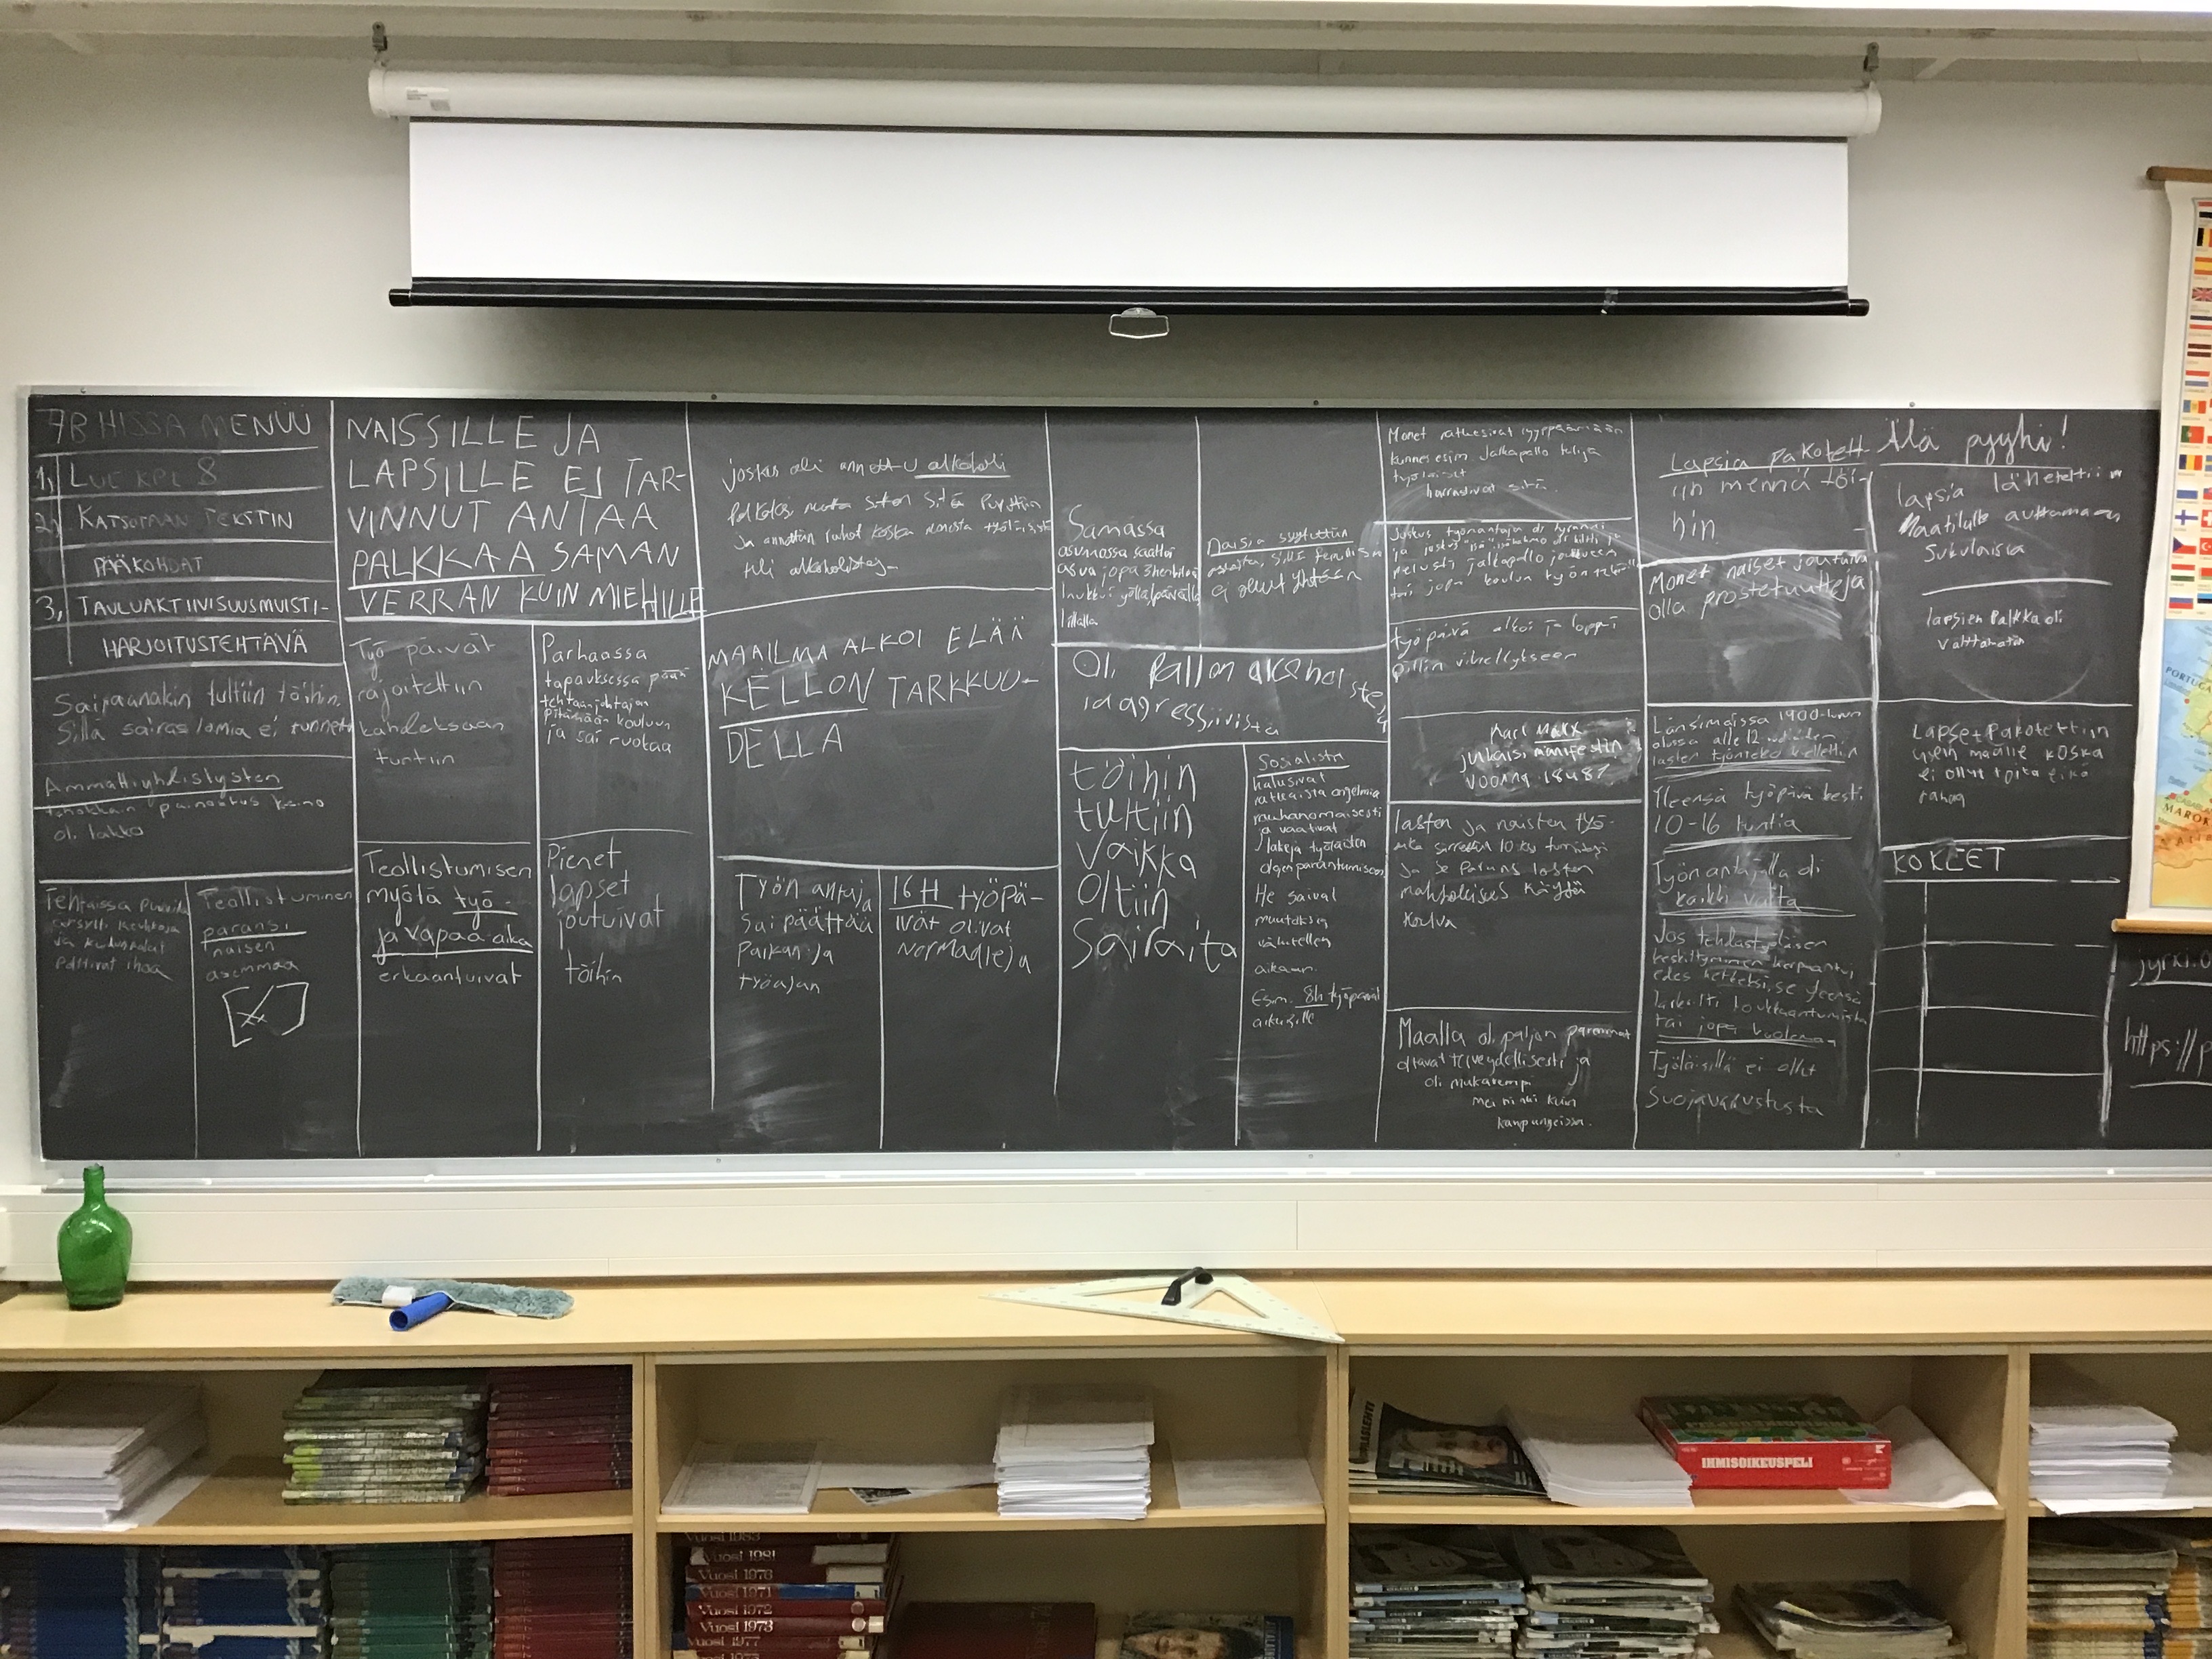 7B HISSA MENUU
1, LUE KPL 8
2, KATSOTAAN TEKSTIN
PÄÄKOHDAT
3, TAULUAKTIIVISUUSMUISTI-
HARJOITUSTEHTÄVÄ
Sairaanakin tultiin töihin.
Sillä sairaslomia ei tunnettu
Ammattiyhdistysten
tehokkain painostus keino
oli lakko
Tehtaissa
ja
ihoa
Teollistuminen
paransi
naisen
asemmaa
NAISSILLE JA
LAPSILLE EI TAR-
VINNUT ANTAA
PALKKAA SAMAN
VERRAN KUIN MIEHILLE
Työ päivät
rajoitettiin
kahdeksaan
tuntiin
Parhaassa
tapauksessa pääsi
tehtaanjohtajan
pitämään kouluun
ja sai ruokaa
Teollistumisen
myötä työ-
ja vapaa-aika
erkaantuivat
Pienet
lapset
joutuivat
töihin
joskus oli annettu alkoholi
palkaksi mutta sitten sitä
ja annettiin rahat koska monesta
tuli alkoholisteja
MAAILMA ALKOI ELÄÄ
KELLON TARKKUU-
DELLA
Työn antaja
sai päättää
Palkan ja
työajan
16 H työpä-
ivät olivat
normaaleja
Samassa
asunnossa saattoi
asua jopa 3 henkilöä
nukkui yöllä, päivällä
illalla
Naisia syytettiin
asioista, sillä feminismiä
ei ollut yhtään
Oli paljon alkoholisteja
ja agressiivista
töihin
tultiin
vaikka
oltiin
sairaita
Sosialistit
halusivat
ratkaista ongelmia
rauhanomaisesti
ja vaativat
lakeja työläisten
olojen parantamiseen
He saivat
muutoksia
vähitellen
aikaan.
Esim. 8h työpäivät
aikuisille
Monet ratkesivat ryyppäämään
kunnes esim jalkapallo tuli ja
työläiset
harrastivat sitä.
Joskus työnantaja oli tyranni
ja joskus "isä" isähahmo oli kiltti ja
perusti jalkapallo joukkueen
tai jopa koulun työntekijöille
työpäivä alkoi ja loppui
pillin vihellykseen
Karl Marx
julkaisi manifestin
vuonna 1848?
lasten ja naisten työ-
aika siirrettiin 10 tuntiseksi
ja se paransi lasten
mahdollisuus käydä
koulua
Maalla oli paljon paremmat
oltavat terveydellisesti ja
oli mukavempi
meininki kuin
kaupungeissa.
Lapsia pakotett-
iin mennä töi-
hin.
Monet naiset joutuivat
olla prostetuutteja
Länsimaissa 1900-luvun
alussa alle 12 vuotiaiden
lasten työnteko kiellettiin
Yleensä työpäivä kesti
10-16 tuntia
Työnantajalla oli
kaikki valta
Jos tehdastyöläisen
keskittyminen herpaantui
edes hetkeksi, se yleensä
tarkoitti loukkaantumista
tai jopa kuoleman
Työläisillä ei ollut
suojavarustusta
Älä pyyhi!
lapsia lähetettiin
Maatilalle auttamaan
sukulaisia
lapsien Palkka oli
välttämätön
Lapset pakotettiin
usein maalle koska
ei ollut töitä eikä
rahaa
KOKEET
jyrki.o
https://p
PORTUGA
MAROK
IHMISOIKEUSPELI
Vuosi 1983
Vuosi 1981
Vuosi 1976
Vuosi 1971
Vuosi 1972
Vuosi 1973
Vuosi 1977